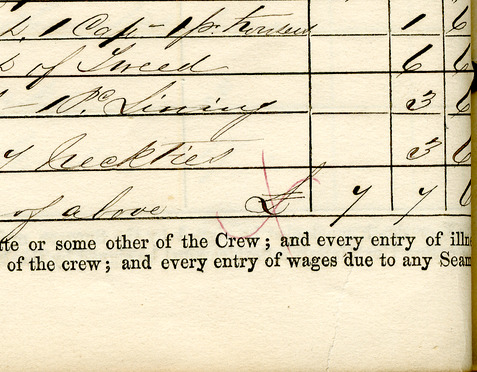 1 Cap - 1 pr. trousers 1 6
of Tweed 6 6
- 1 Pc Lining 3 6
Neckties 3 6
of above £ 7 7 6
te or some other of the Crew; and every entry of illn
of the crew; and every entry of wages due to any Seam